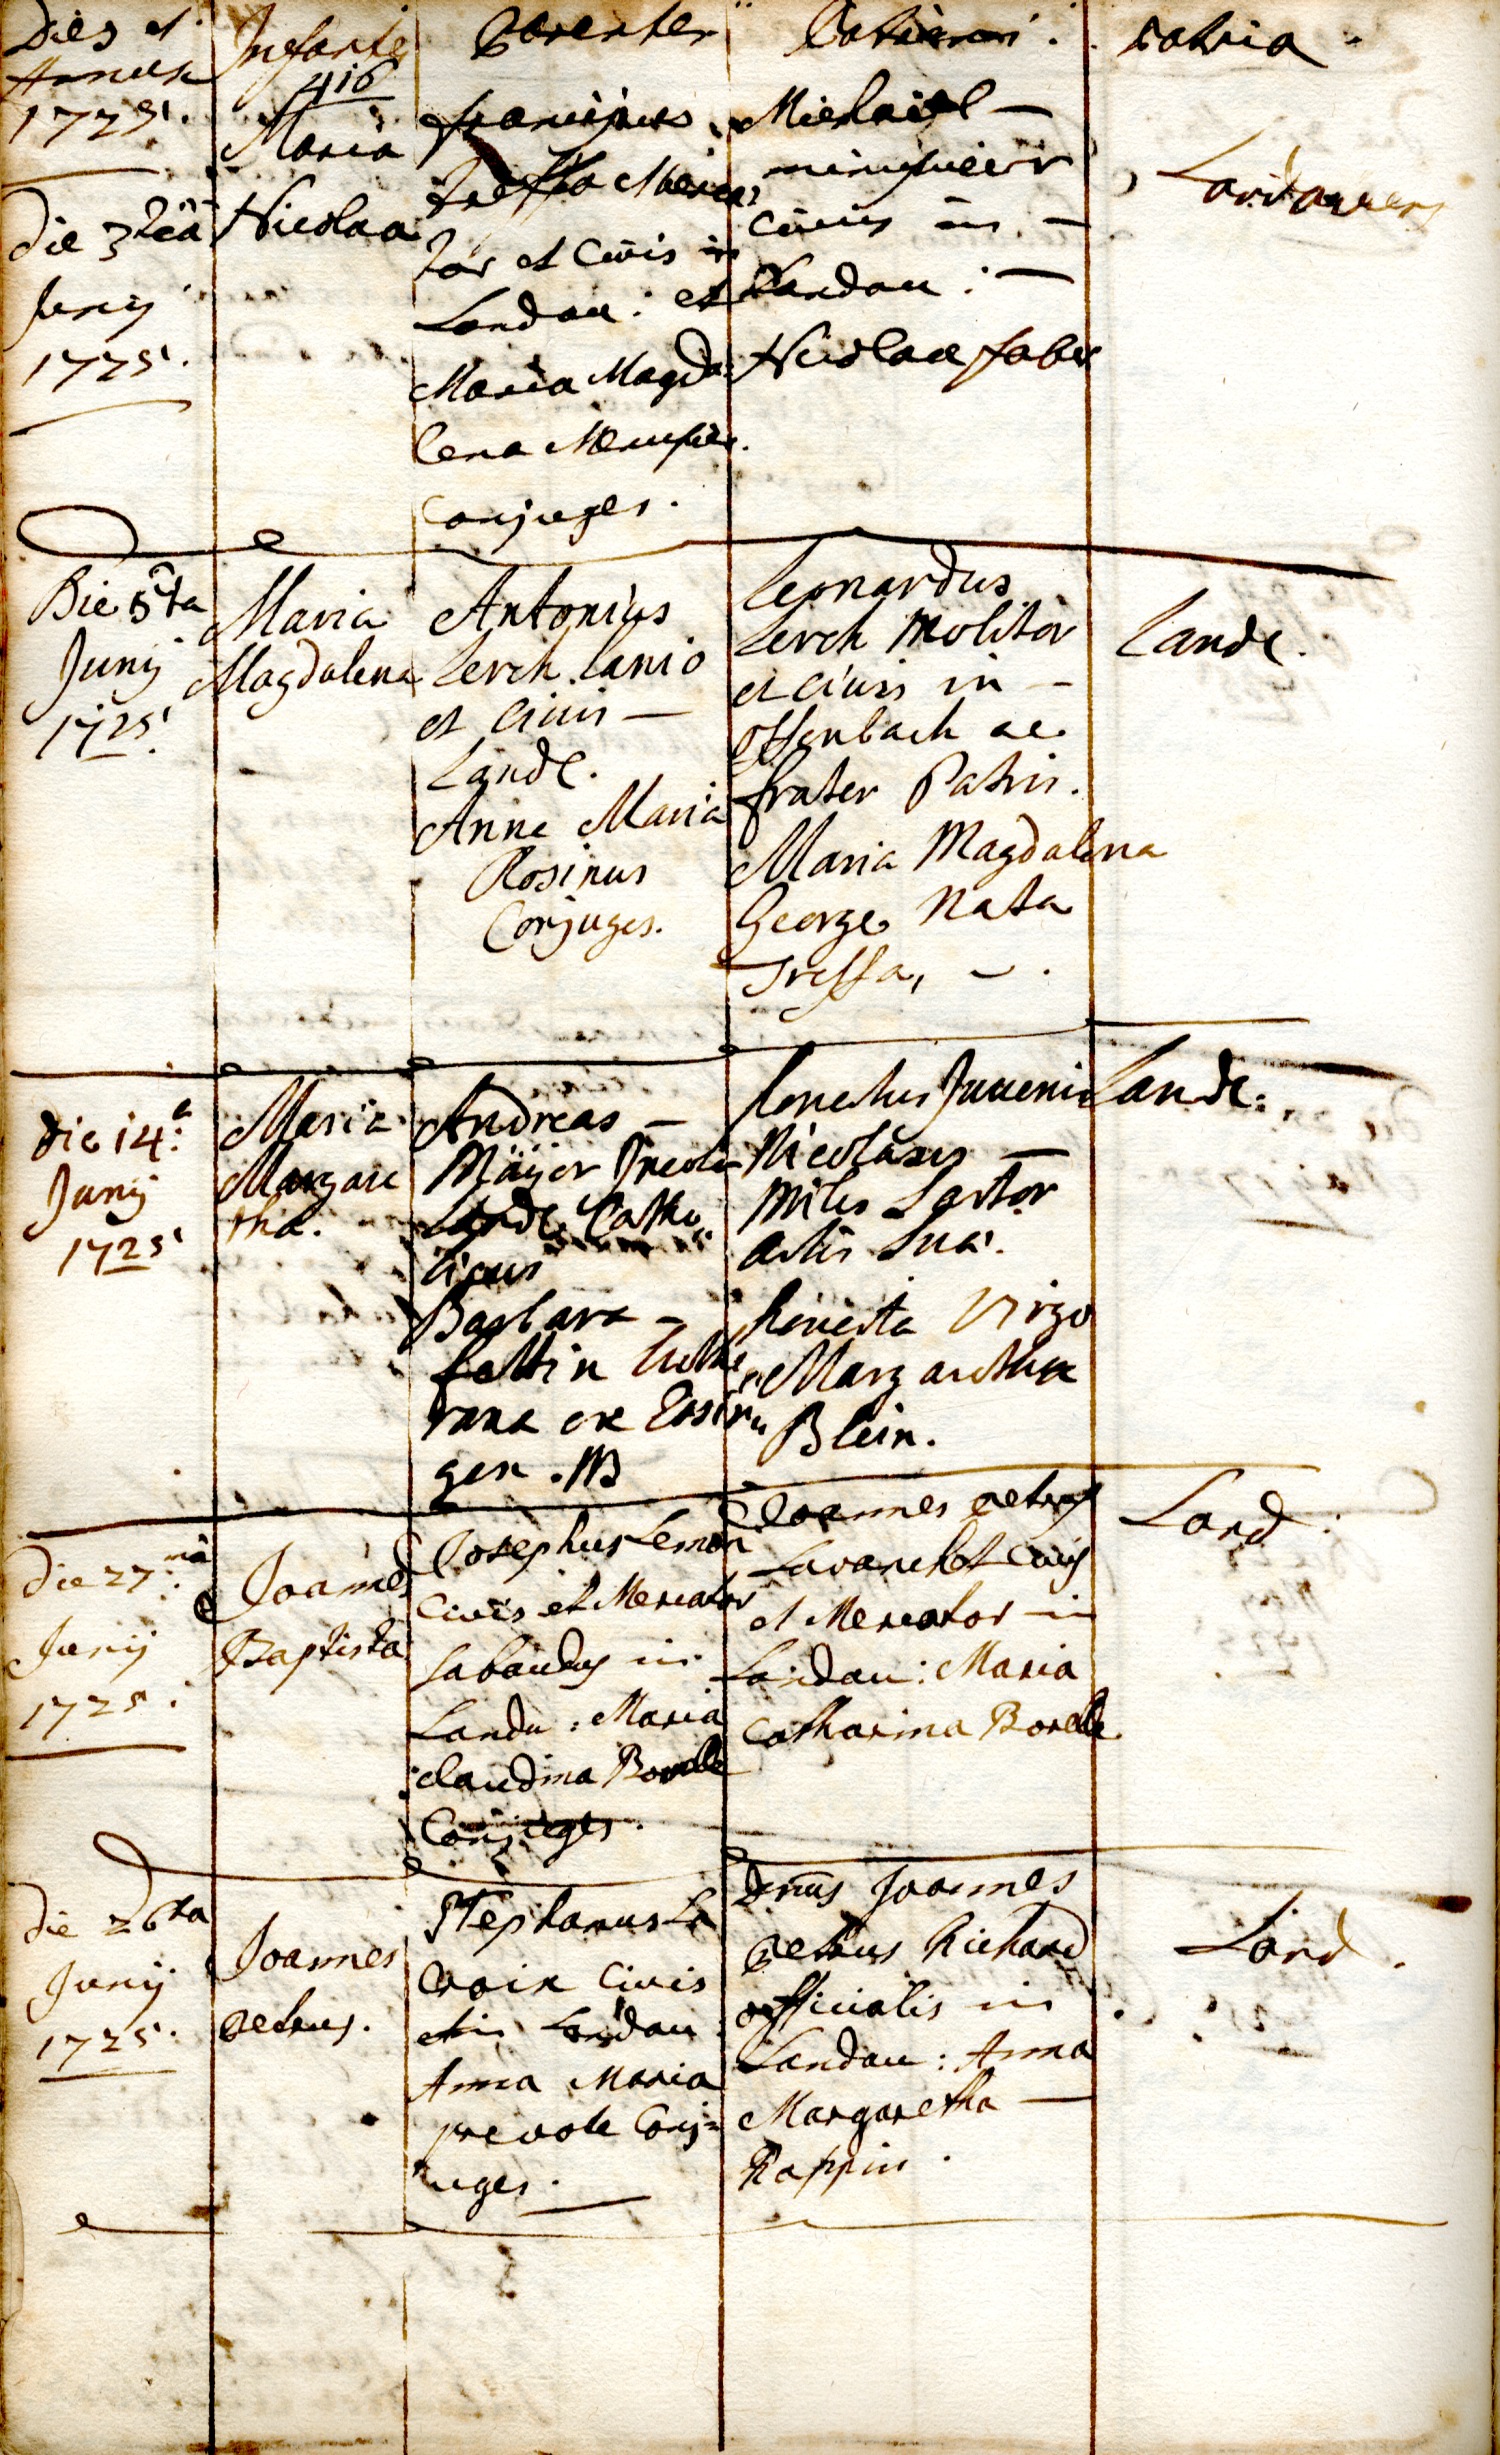 Dies et
Annus
1725.
Infante
416
Parentes
Patrini
Patria
die 3tia
Junÿ
1725.
Maria
Nicolaa
franciscus
Treffa Merca
tor et Civis in
Landau: et
Maria Magda
lena
Conjuges.
Michael —
civis in —
Landau: —
Nicolaa faber
Landaviens
Die 5ta
Junÿ
1725.
Maria
Magdalena
Antonius
Lerch lanio
et Civis —
Landc.
Anna Maria
Rosinus
Conjuges.
Leonardus
Lerch Molitor
et civis in —
Offenbach ac
frater Patris.
Maria Magdalena
George Nata
Treffa, — .
Landc.
Die 14.a
Junÿ
1725
Maria
Margare
tha.
Andreas —
Mäÿer Incola
Landc. Catho
licus
Barbara —
fettin Luthe
rana ex
gen. NB
honestus Juvenis
Nicolaus —
Miles Sartor
artis suae.
honesta Virgo
Margaretha
Blein.
Landc:
die 27.ma
Junÿ
1725.
Joannes
Baptista
Josephus Lemon
Civis et Mercator
Sabaudus in
Landau: Maria
Claudina Borelle
Conjuges.
Joannes petrus
Lavanchet Civis
et Mercator in
Landau: Maria
Catharina Borelle.
Land:
die 26ta
Junÿ
1725.
Joannes
petrus.
Stephanus La
Croix Civis
in Landau
Anna Maria
prevote Conj=
uges.
Dnus Joannes
petrus Richard
officialis in
Landau: Anna
Margaretha —
Rappin.
Land.